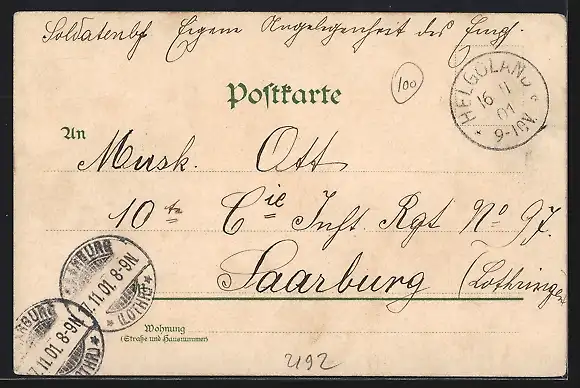 Soldatenbf Eigene Angelegenheit des Empf.
100
Postkarte
HELGOLAND
16 11
01
9-10V.
An
Musk. Ott
10te Cie Inft. Rgt No 97.
Saarburg (Lothringen
SAARBURG
17.11.01. 8-9N
(LOTHR)
ARBURG
7.11.01. 8-9N
(LOTHR)
Wohnung
(Straße und Hausnummer)
2192